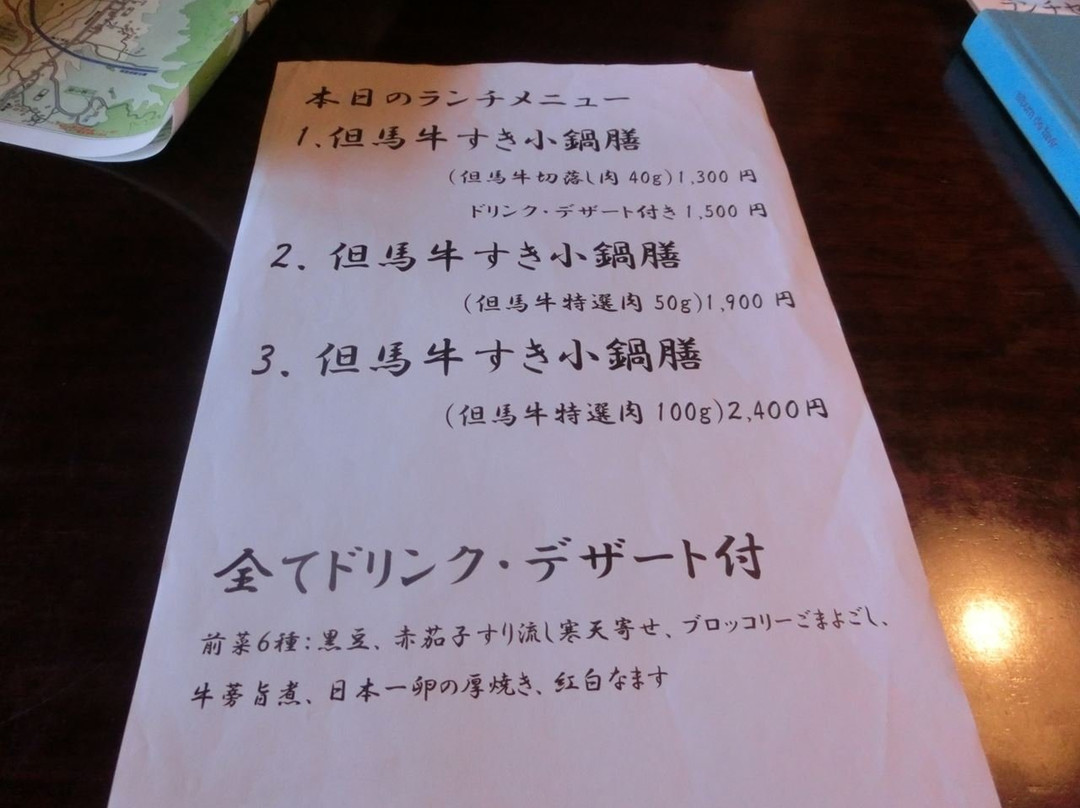 本日のランチメニュー
1.但馬牛すき小鍋膳
(但馬牛切落し肉 40g)1,300 円
ドリンク・デザート付き 1,500 円
2. 但馬牛すき小鍋膳
(但馬牛特選肉 50g)1,900 円
3. 但馬牛すき小鍋膳
(但馬牛特選肉 100g)2,400円
全てドリンク・デザート付
前菜6種:黒豆、赤茄子すり流し寒天寄せ、ブロッコリーごまよごし、
牛蒡旨煮、日本一卵の厚焼き、紅白なます